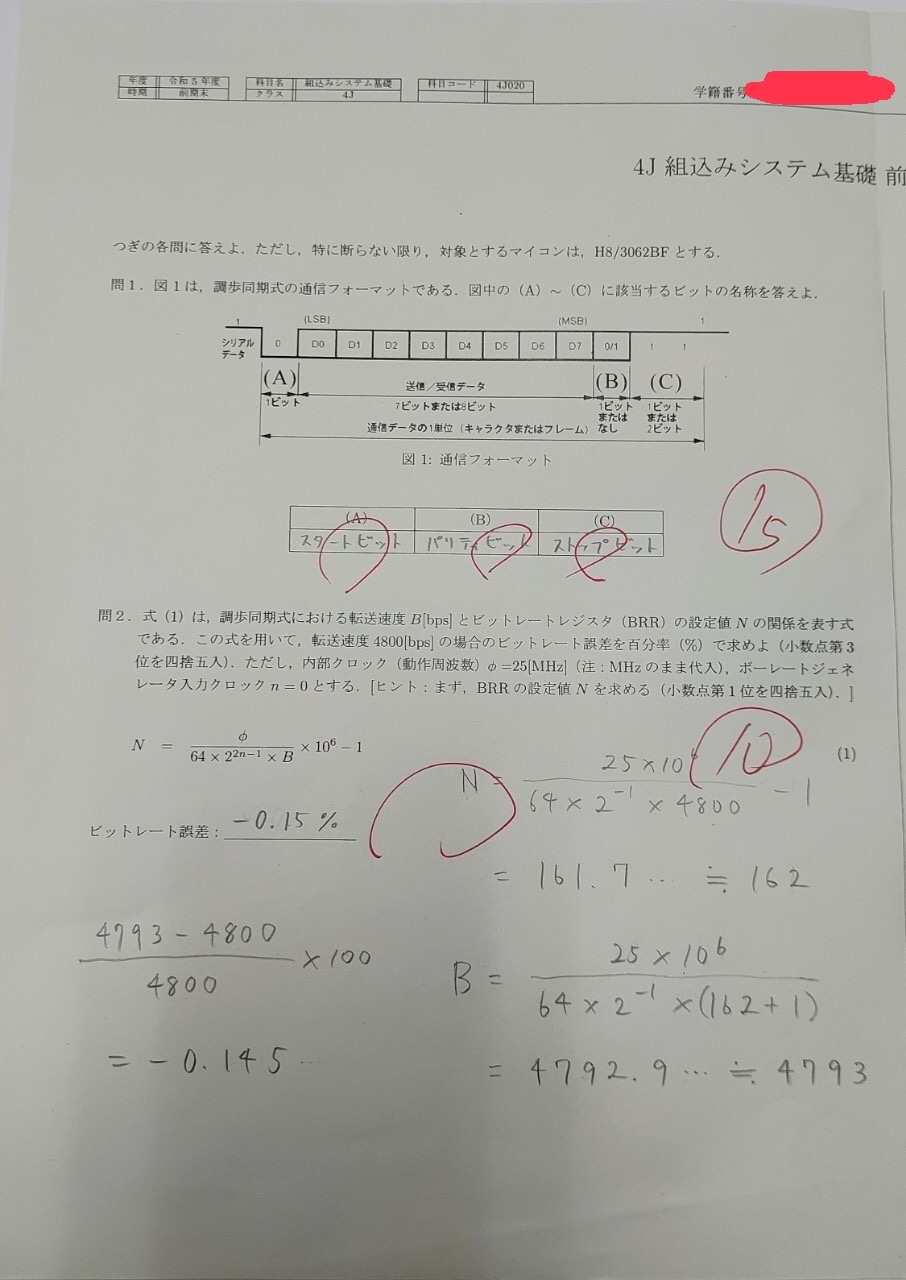 年度 令和5年度 科目名 組込みシステム基礎 科目コード 4J020
時期 前期末 クラス 4J
学籍番号
4J 組込みシステム基礎 前
つぎの各問に答えよ．ただし，特に断らない限り，対象とするマイコンは，H8/3062BF とする．
問1．図1は，調歩同期式の通信フォーマットである．図中の（A）～（C）に該当するビットの名称を答えよ．
1 (LSB) (MSB) 1
シリアルデータ 0 D0 D1 D2 D3 D4 D5 D6 D7 0/1 1 1
(A) 送信／受信データ (B) (C)
1ビット 7ビットまたは8ビット 1ビットまたはなし 1ビットまたは2ビット
通信データの1単位（キャラクタまたはフレーム）
図1: 通信フォーマット
15
(A) (B) (C)
スタートビット パリティビット ストップビット
問2．式（1）は，調歩同期式における転送速度 B[bps] とビットレートレジスタ（BRR）の設定値 N の関係を表す式
である．この式を用いて，転送速度 4800[bps] の場合のビットレート誤差を百分率（%）で求めよ（小数点第3
位を四捨五入）．ただし，内部クロック（動作周波数）φ=25[MHz]（注：MHz のまま代入），ボーレートジェネ
レータ入力クロック n = 0 とする．[ヒント：まず，BRR の設定値 N を求める（小数点第1位を四捨五入）．]
N = φ / (64 × 2^{2n−1} × B) × 10^6 − 1 (1)
10
N = 25×10 / (64 × 2^{-1} × 4800) - 1
ビットレート誤差： -0.15 %
= 161.7 … ≒ 162
(4793 - 4800) / 4800 × 100
B = 25 × 10^6 / (64 × 2^{-1} × (162 + 1))
= -0.145 …
= 4792.9 … ≒ 4793